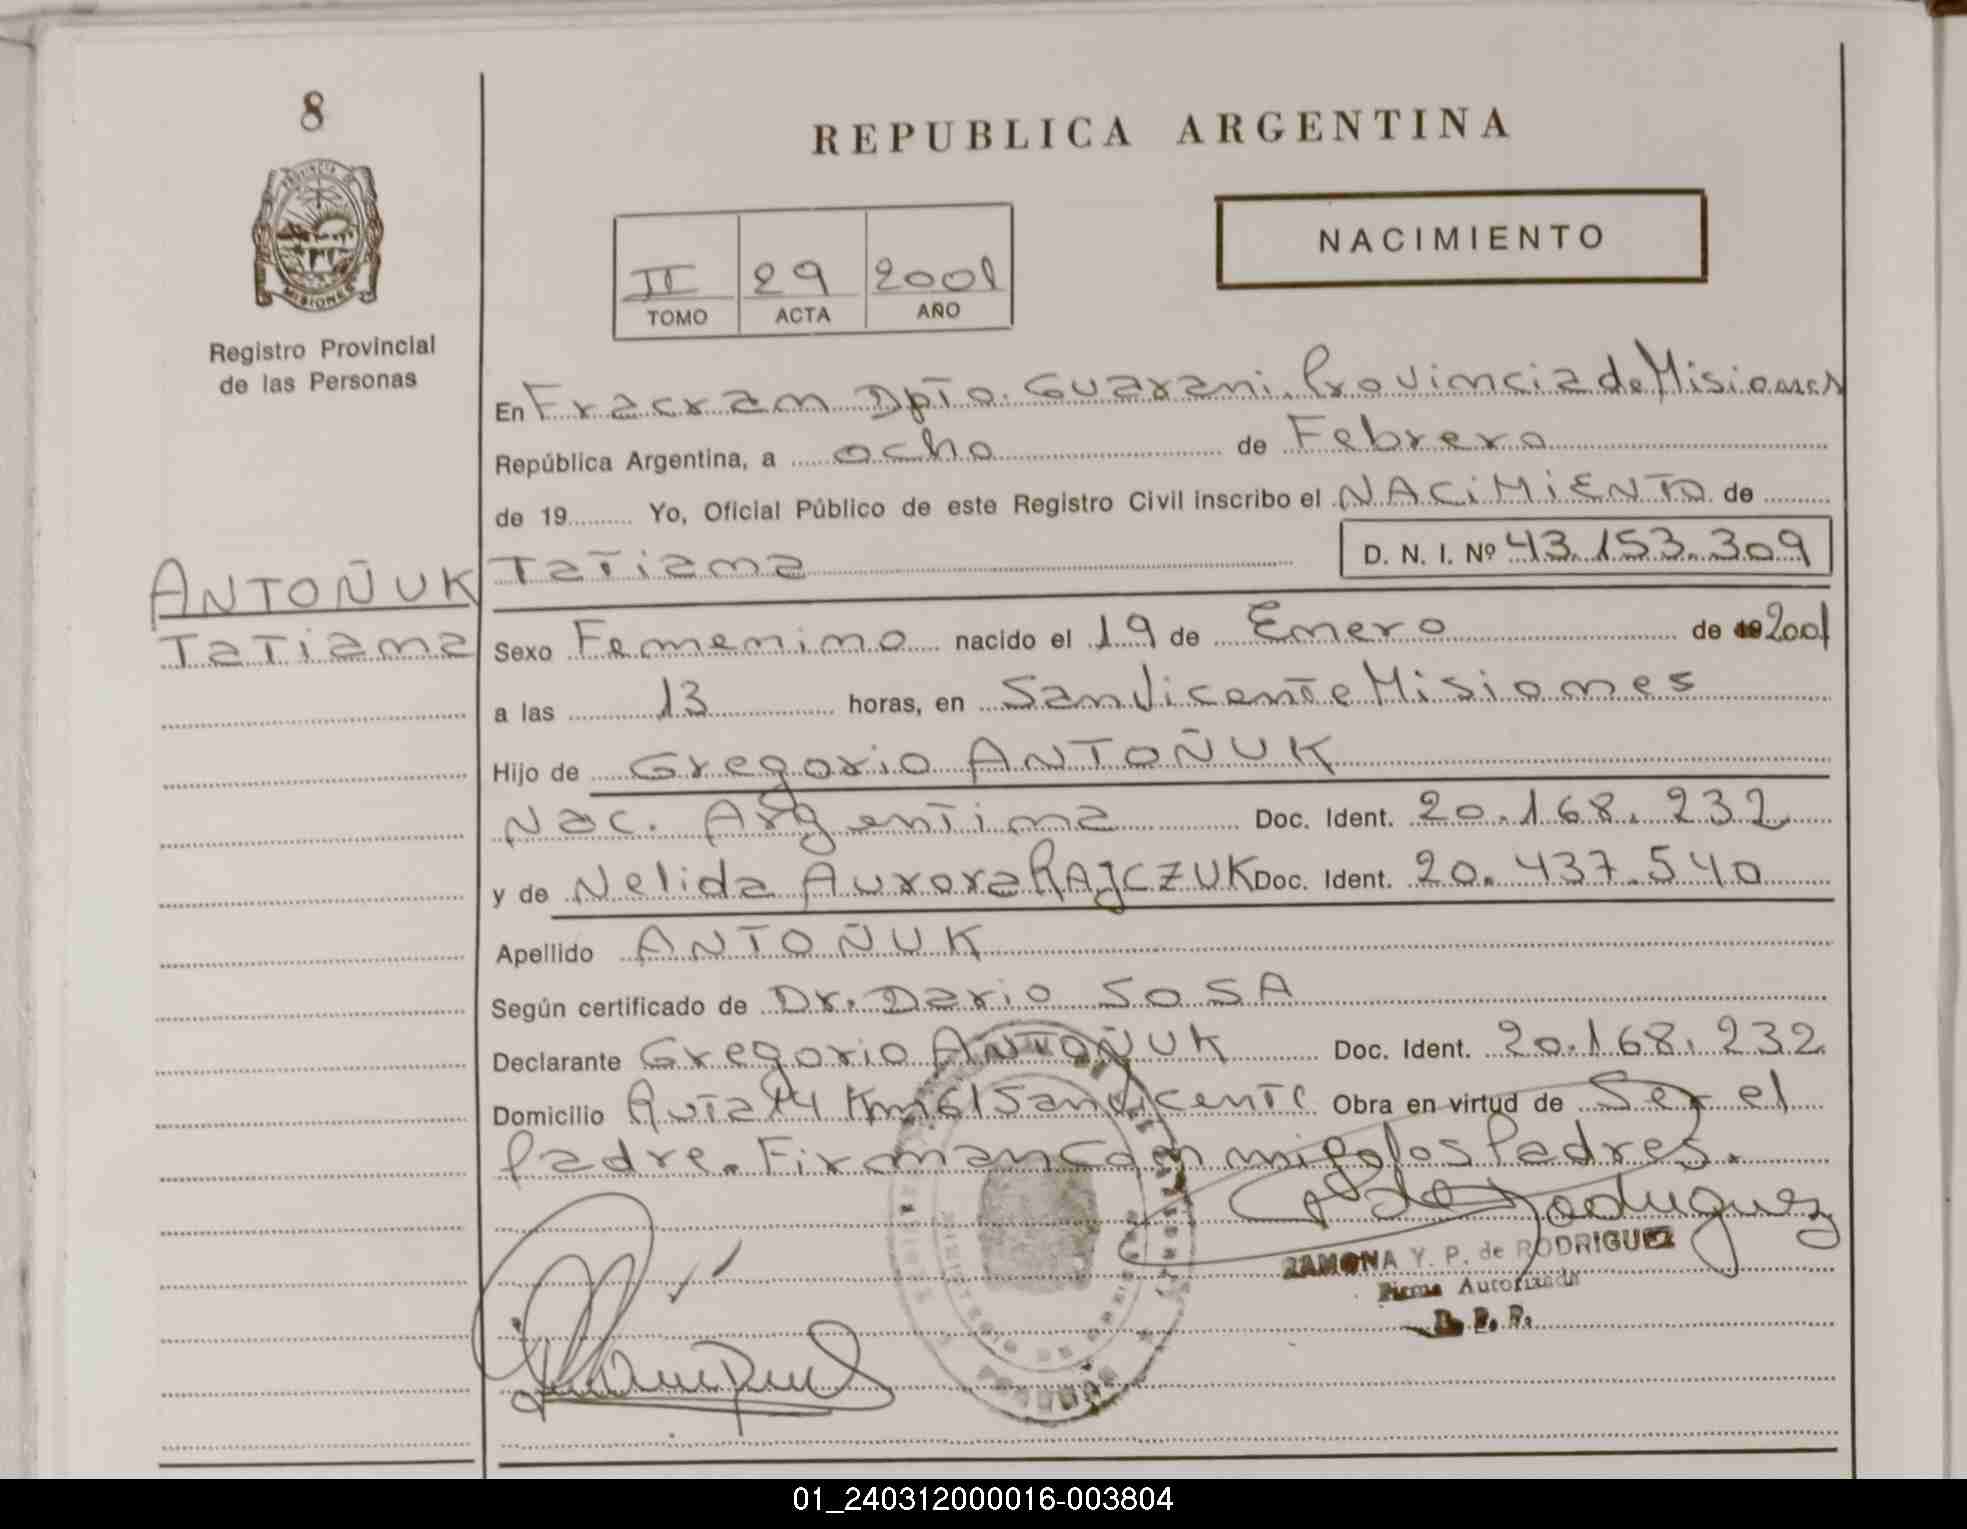 8
REPUBLICA ARGENTINA
PROVINCIA DE
MISIONES
NACIMIENTO
II 29 2001
TOMO ACTA AÑO
Registro Provincial
de las Personas
En Fracran Dpto. Guarani. Provincia de Misiones
República Argentina, a ocho de Febrero
de 19 Yo, Oficial Público de este Registro Civil inscribo el NACIMIENTO de
ANTOÑUK
Tatiana
Tatiana D. N. I. Nº 43.153.309
Sexo Femenino nacido el 19 de Enero de 2001
a las 13 horas, en San Vicente Misiones
Hijo de Gregorio ANTOÑUK
Nac. Argentina Doc. Ident. 20.168.232
y de Nelida Aurora RAJCZUK Doc. Ident. 20.437.540
Apellido ANTOÑUK
Según certificado de Dr. Dario SOSA
Declarante Gregorio ANTOÑUK Doc. Ident. 20.168.232
Domicilio Ruta 14 Km 61 San Vicente Obra en virtud de Ser el
Padre. Firman los Padres.
RAMONA Y. P. de RODRIGUEZ
Firma Autorizada
01_240312000016-003804